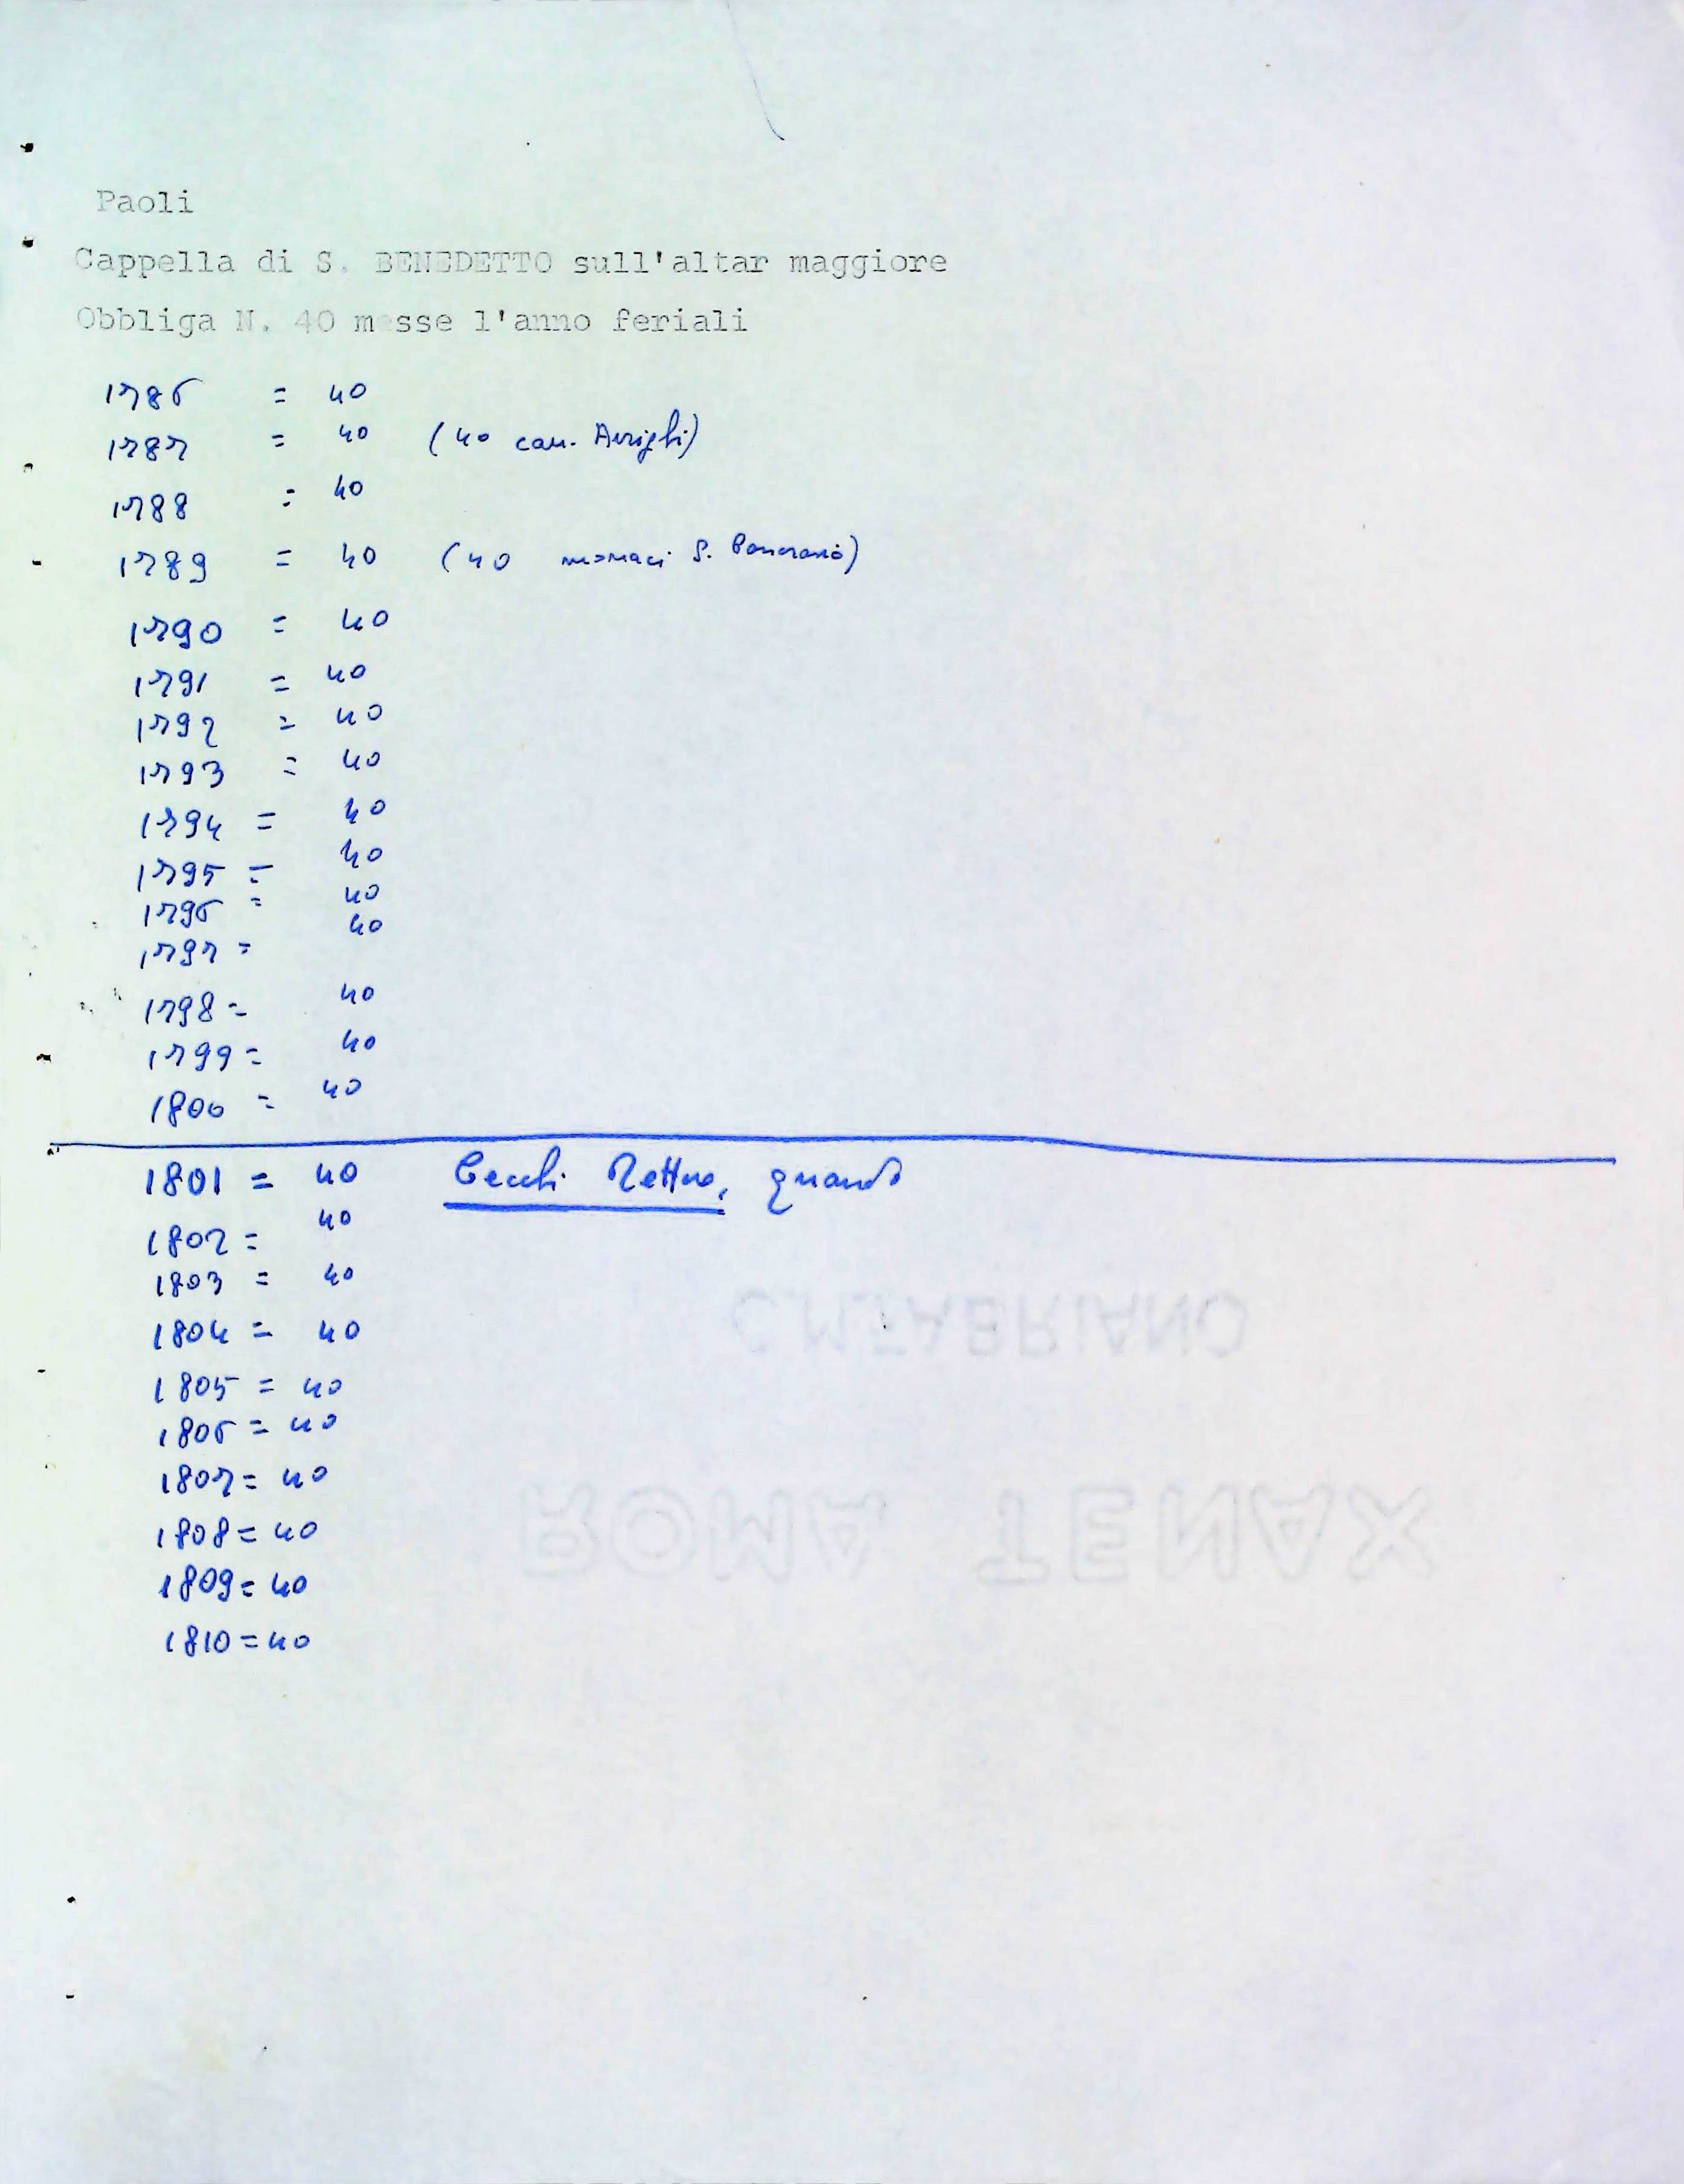 Paoli
Cappella di S. BENEDETTO sull'altar maggiore
Obbliga N. 40 messe l'anno feriali
1786 = 40
1787 = 40 (40 can. Arrighi)
1788 = 40
1789 = 40 (40 monaci S. Pancrazio)
1790 = 40
1791 = 40
1792 = 40
1793 = 40
1794 = 40
1795 = 40
1796 = 40
1797 = 40
1798 = 40
1799 = 40
1800 = 40
1801 = 40 Cecchi Rettore, quando
1802 = 40
1803 = 40
1804 = 40
1805 = 40
1806 = 40
1807 = 40
1808 = 40
1809 = 40
1810 = 40
C.M.FABRIANO
ROMA TENAX